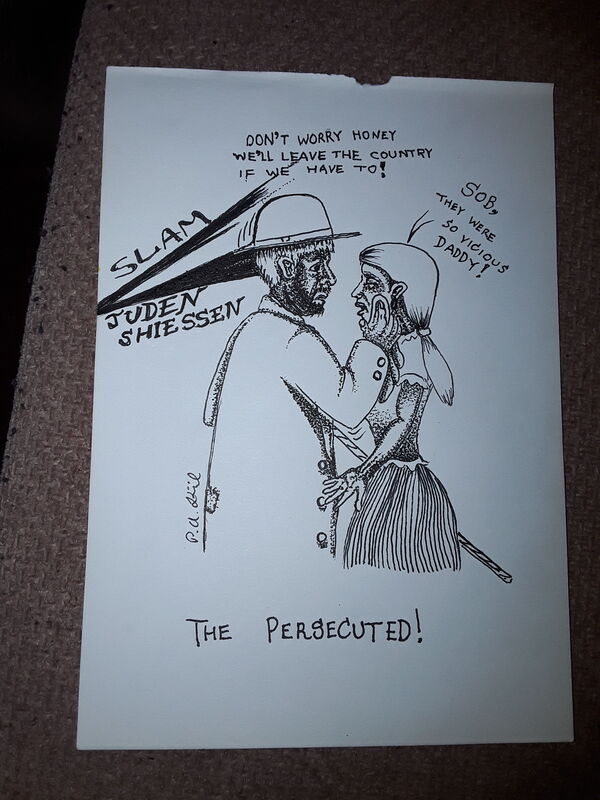 DON'T WORRY HONEY
WE'LL LEAVE THE COUNTRY
IF WE HAVE TO!
SOB,
THEY WERE
SO VICIOUS
DADDY!
SLAM
JUDEN
SHIESSEN
THE PERSECUTED!